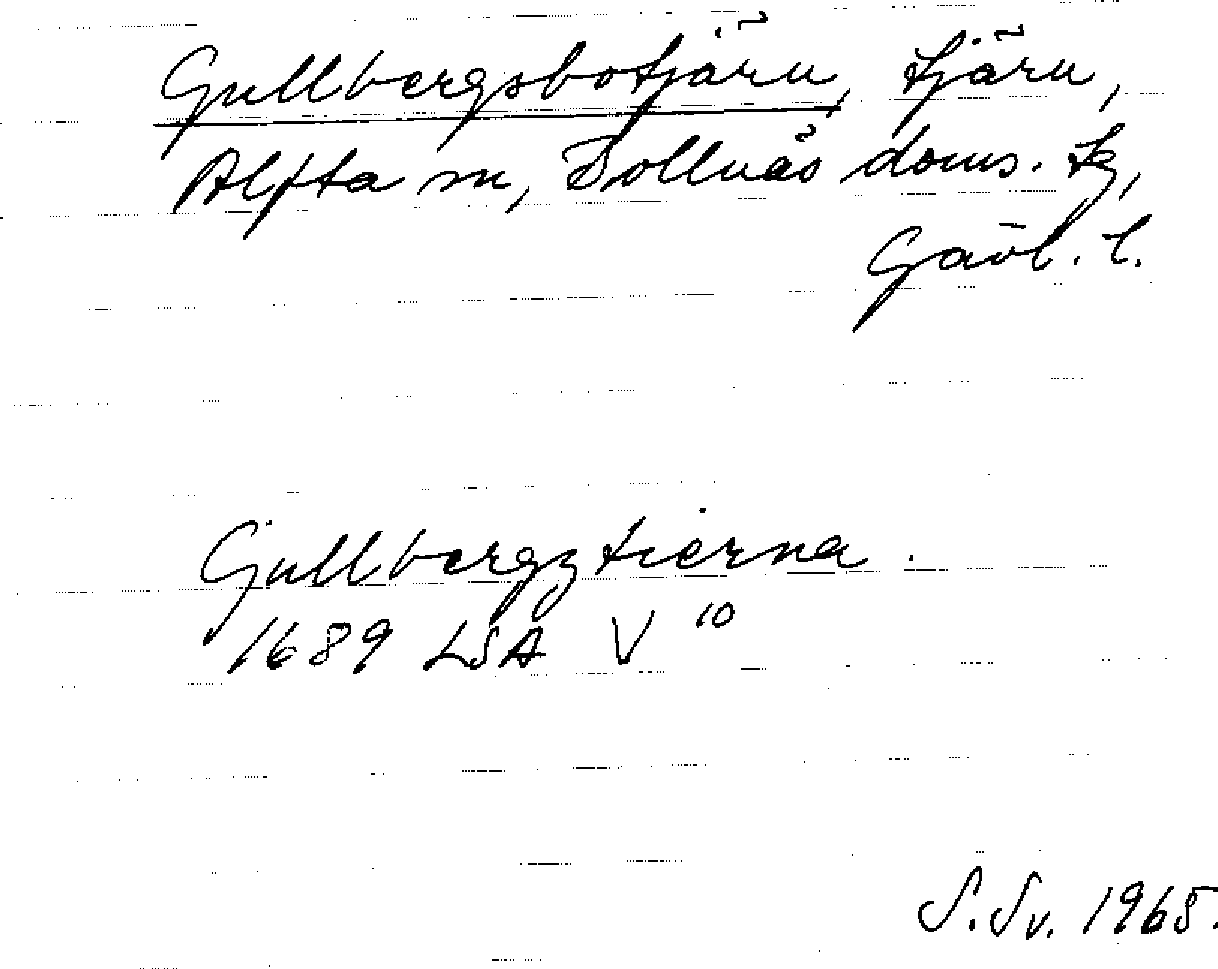 Gullbergsbotjärn, tjärn,
Alfta sn, Bollnäs doms. tg,
Gävl. l.
Gullbergztierna.
1689 LSA V 10
S. Sv. 1965.